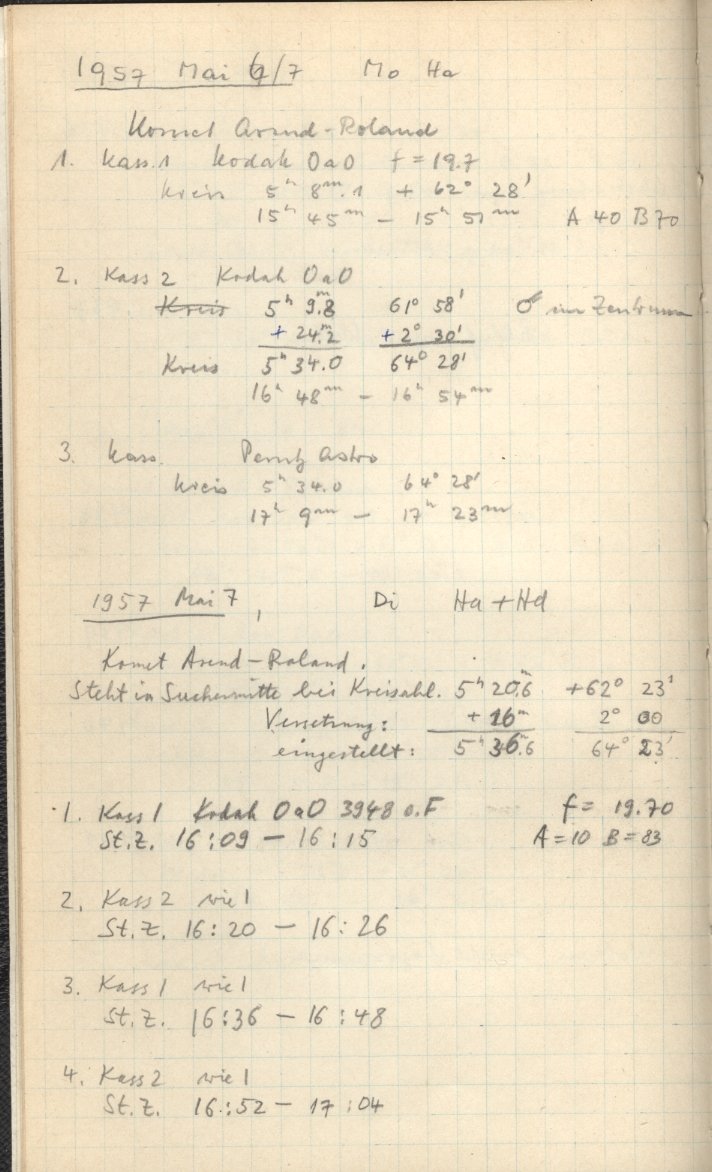 1957 Mai 6/7 Mo Ha
Komet Arend-Roland
1. Kass. 1 Kodak OaO f = 19.7
Kreis 5ʰ 8ᵐ.1 + 62° 28'
15ʰ 45ᵐ – 15ʰ 51ᵐ A 40 B 70
2. Kass 2 Kodak OaO
Kreis 5ʰ 9ᵐ.8 61° 58' ☄ im Zentrum
+ 24ᵐ.2 + 2° 30'
Kreis 5ʰ 34.0 64° 28'
16ʰ 48ᵐ – 16ʰ 54ᵐ
3. Kass. Perutz Astro
Kreis 5ʰ 34.0 64° 28'
17ʰ 9ᵐ – 17ʰ 23ᵐ
1957 Mai 7, Di Ha + Hd
Komet Arend-Roland.
Steht in Suchermitte bei Kreisabl. 5ʰ 20ᵐ.6 +62° 23'
Versetzung: + 16ᵐ 2° 00
eingestellt: 5ʰ 36ᵐ.6 64° 23'
1. Kass 1 Kodak OaO 3948 o.F f = 19.70
St.Z. 16:09 – 16:15 A = 10 B = 83
2. Kass 2 wie 1
St.Z. 16:20 – 16:26
3. Kass 1 wie 1
St.Z. 16:36 – 16:48
4. Kass 2 wie 1
St.Z. 16:52 – 17:04